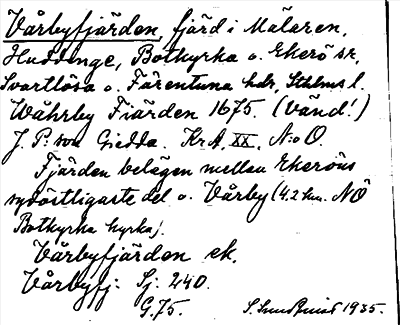 Vårbyfjärden, fjärd i Mälaren,
Huddinge, Botkyrka o. Ekerö sr,
Svartlösa o. Färentuna hdr, Sthlms l.
Wåhrby Fiärden 1675. (Vänd!)
J. P:son Giedda. KrA. XX. N:o O.
Fjärden belägen mellan Ekeröns
sydöstligaste del o. Vårby (4.2 km. NÖ
Botkyrka kyrka).
Vårbyfjärden ek.
Vårbyfj. Sj. 240.
G. 75.
S. 1935.